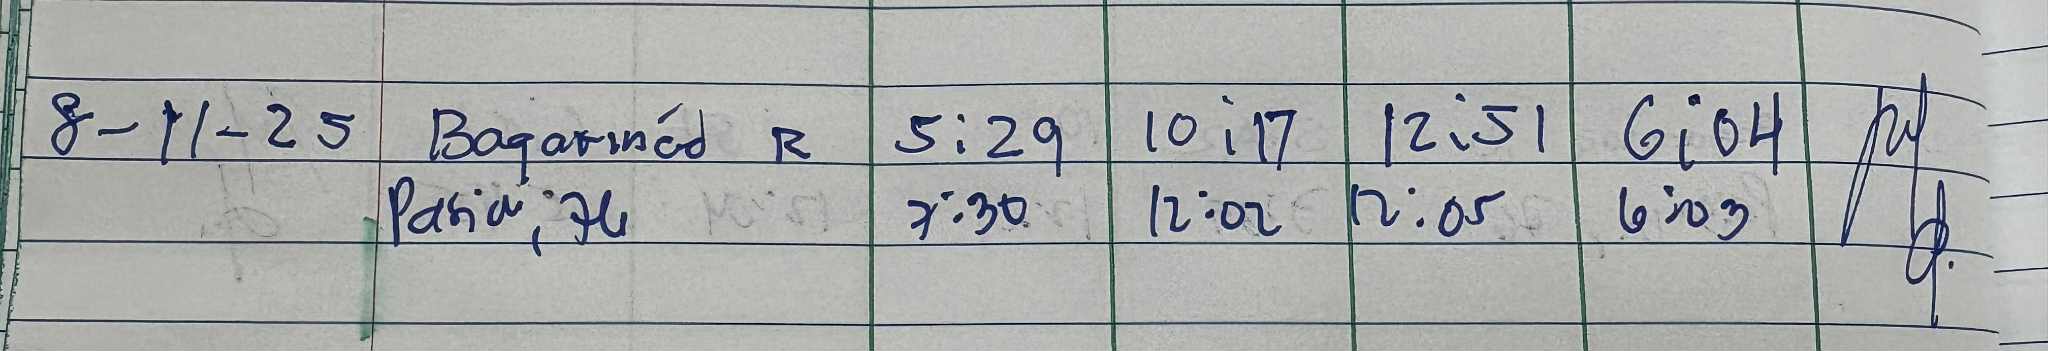 8-11-25 Bagarinād R 5:29 10:17 12:51 6:04
7:30 12:02 12:05 6:03